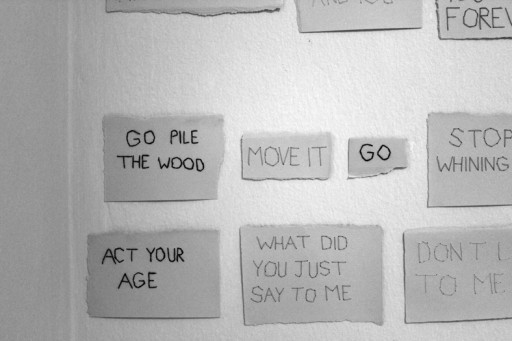 FOREV
GO PILE
THE WOOD
MOVE IT
GO
STOP
WHINING
ACT YOUR
AGE
WHAT DID
YOU JUST
SAY TO ME
DONT L
TO ME